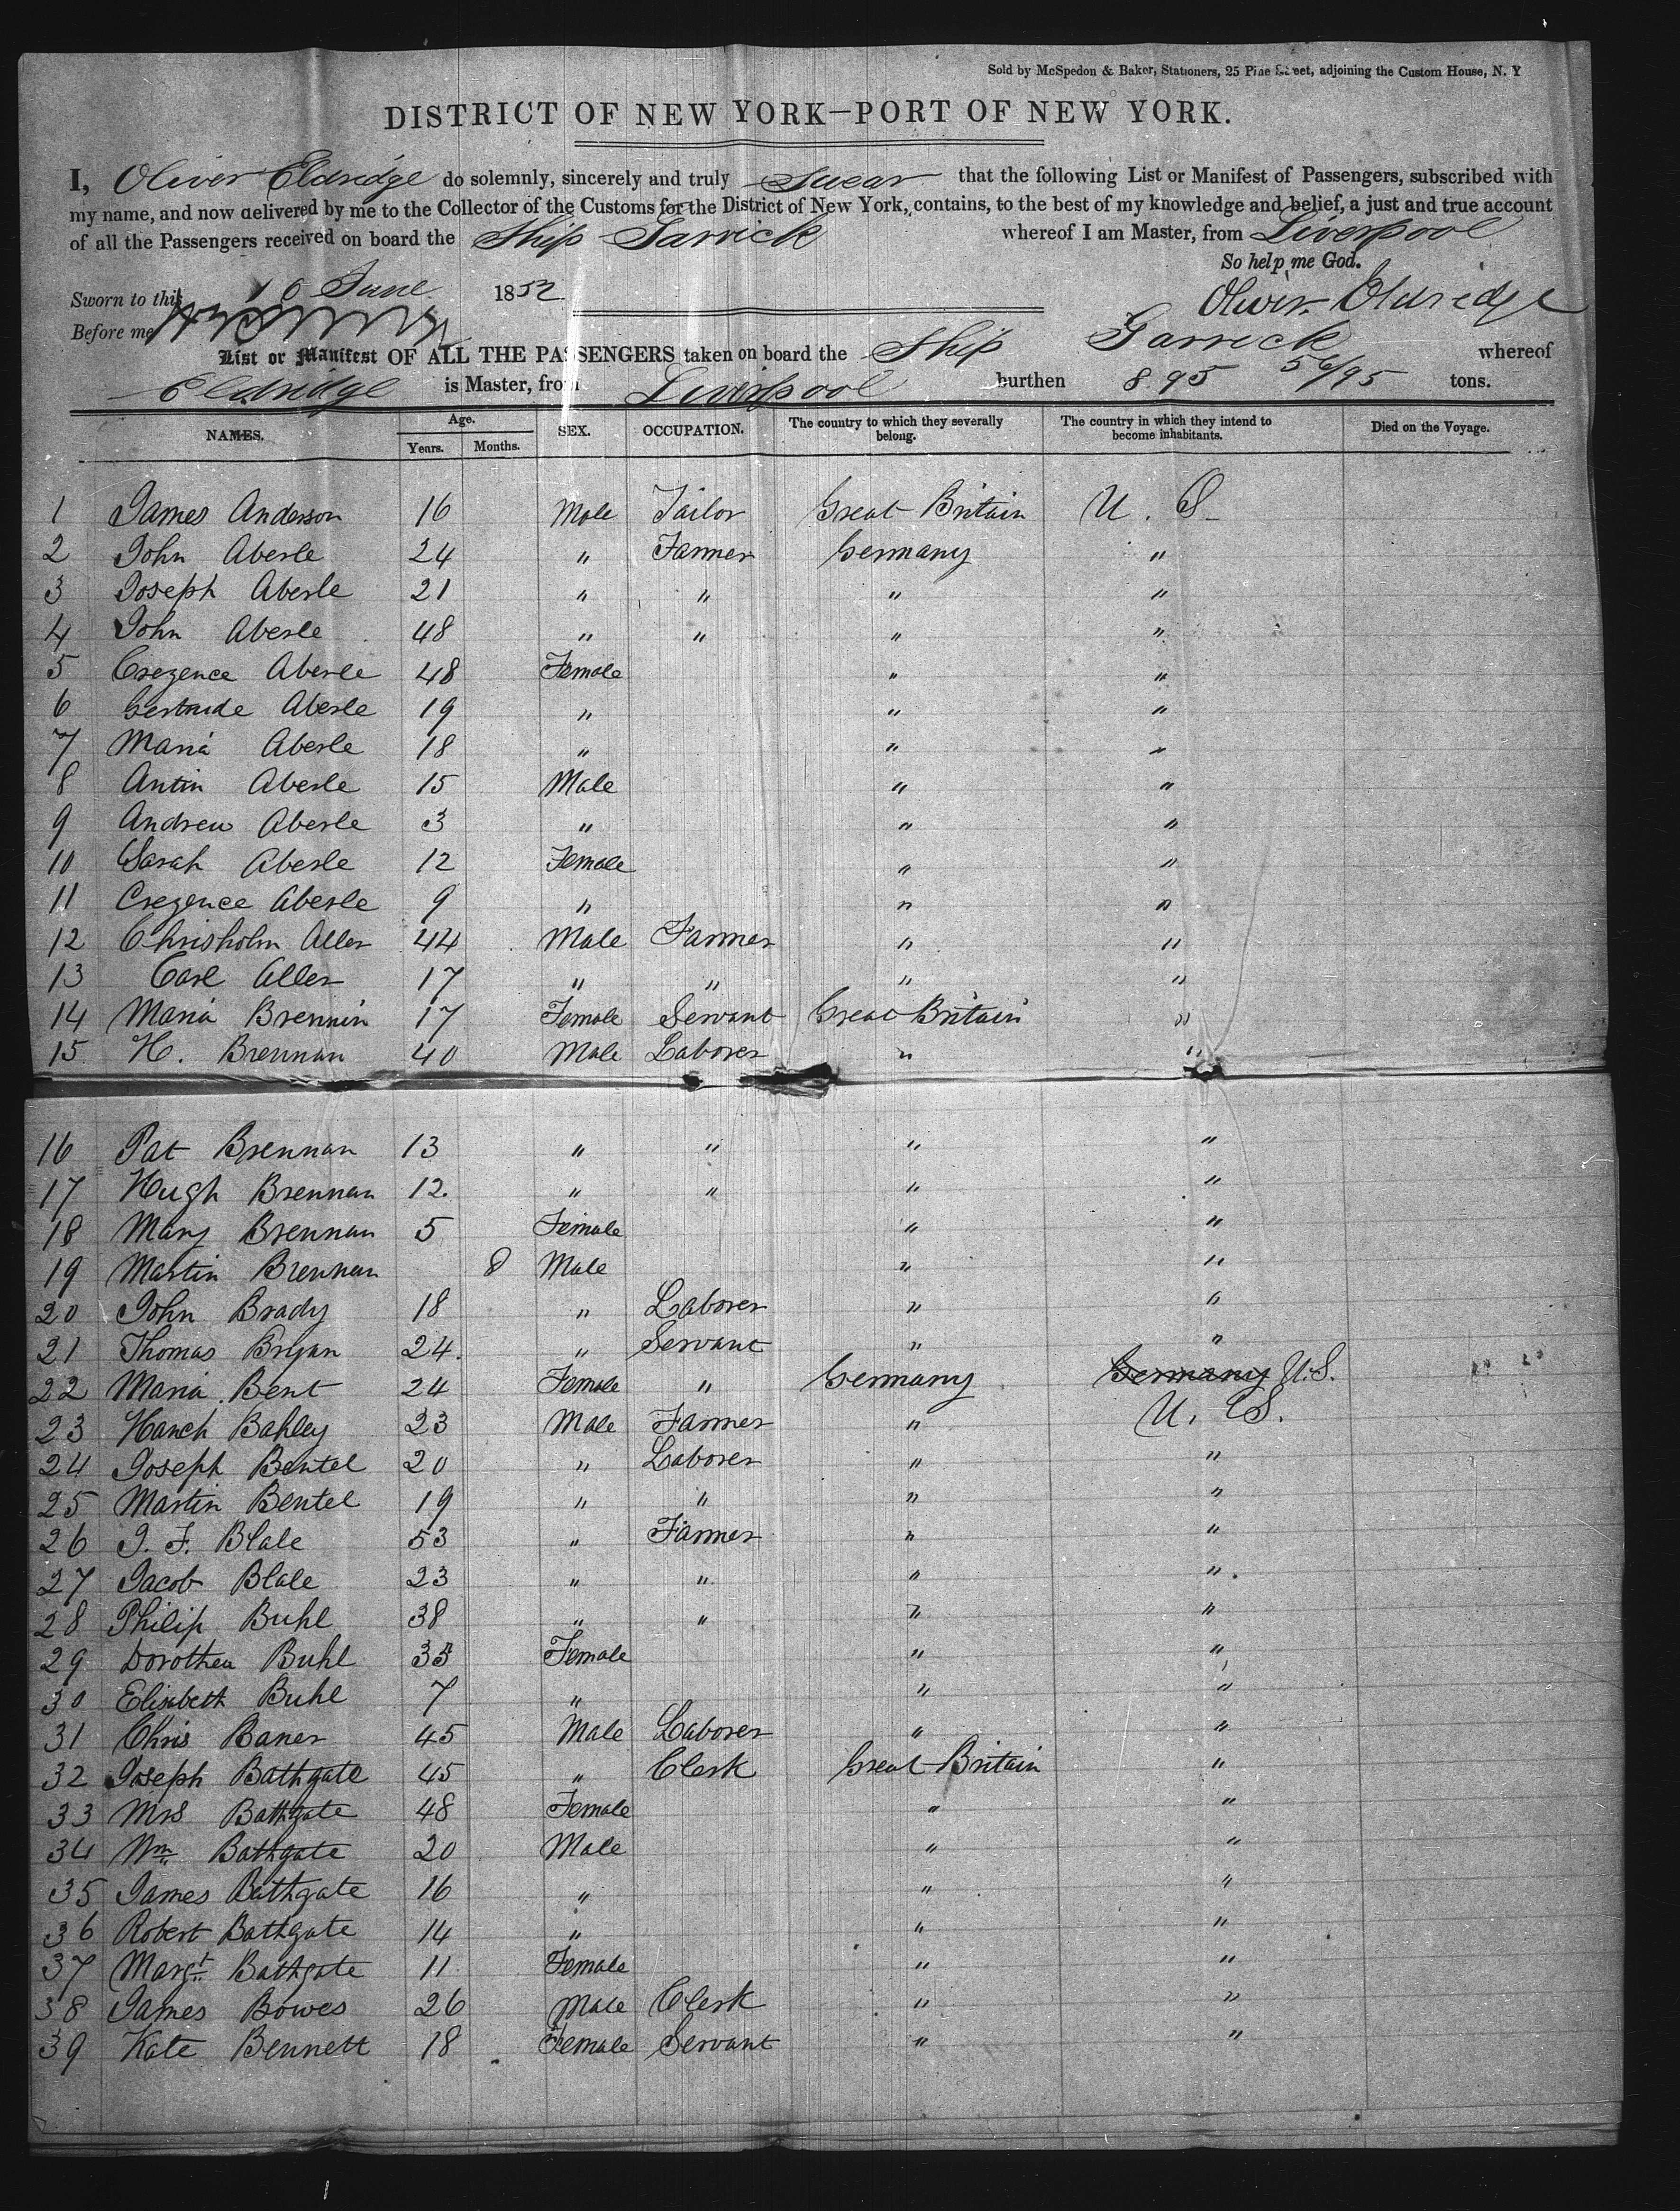 Sold by McSpedon & Baker, Stationers, 25 Pine Street, adjoining the Custom House, N. Y
DISTRICT OF NEW YORK—PORT OF NEW YORK.
I, Oliver Eldredge do solemnly, sincerely and truly Swear that the following List or Manifest of Passengers, subscribed with
my name, and now delivered by me to the Collector of the Customs for the District of New York, contains, to the best of my knowledge and belief, a just and true account
of all the Passengers received on board the Ship Garrick whereof I am Master, from Liverpool
So help me God.
Sworn to this 10 June 1852
Oliver Eldredge
Before me
List or Manifest OF ALL THE PASSENGERS taken on board the Ship Garrick whereof
Eldridge is Master, from Liverpool burthen 895 56/95 tons.
NAMES. Age. Years. Months. SEX. OCCUPATION. The country to which they severally belong. The country in which they intend to become inhabitants. Died on the Voyage.
1 James Anderson 16 Male Tailor Great Britain U. S
2 John Aberle 24 " Farmer Germany "
3 Joseph Aberle 21 " " " "
4 John Aberle 48 " " " "
5 Crezence Aberle 48 Female " "
6 Gertrude Aberle 19 " " "
7 Maria Aberle 18 " " "
8 Antin Aberle 15 Male " "
9 Andrew Aberle 3 " " "
10 Sarah Aberle 12 Female " "
11 Crezence Aberle 9 " " "
12 Chrisholm Aller 44 Male Farmer " "
13 Carl Aller 17 " " " "
14 Maria Brennin 17 Female Servant Great Britain "
15 H. Brennan 40 Male Laborer " "
16 Pat Brennan 13 " " " "
17 Hugh Brennan 12. " " " "
18 Mary Brennan 5 Female " "
19 Martin Brennan 8 Male " "
20 John Brady 18 " Laborer " "
21 Thomas Bryan 24. " Servant " "
22 Maria Bent 24 Female " Germany Germany U.S.
23 Hanch Bahley 23 Male Farmer " U. S.
24 Joseph Bentel 20 " Laborer " "
25 Martin Bentel 19 " " " "
26 J. F. Blale 53 " Farmer " "
27 Jacob Blale 23 " " " "
28 Philip Buhl 38 " " " "
29 Dorothea Buhl 35 Female " "
30 Elisabeth Buhl 7 " " "
31 Chris Baner 45 Male Laborer " "
32 Joseph Bathgate 45 " Clerk Great Britain "
33 Mrs Bathgate 48 Female " "
34 Wm Bathgate 20 Male " "
35 James Bathgate 16 " " "
36 Robert Bathgate 14 " " "
37 Margt Bathgate 11 Female " "
38 James Bowes 26 Male Clerk " "
39 Kate Bennett 18 Female Servant " "